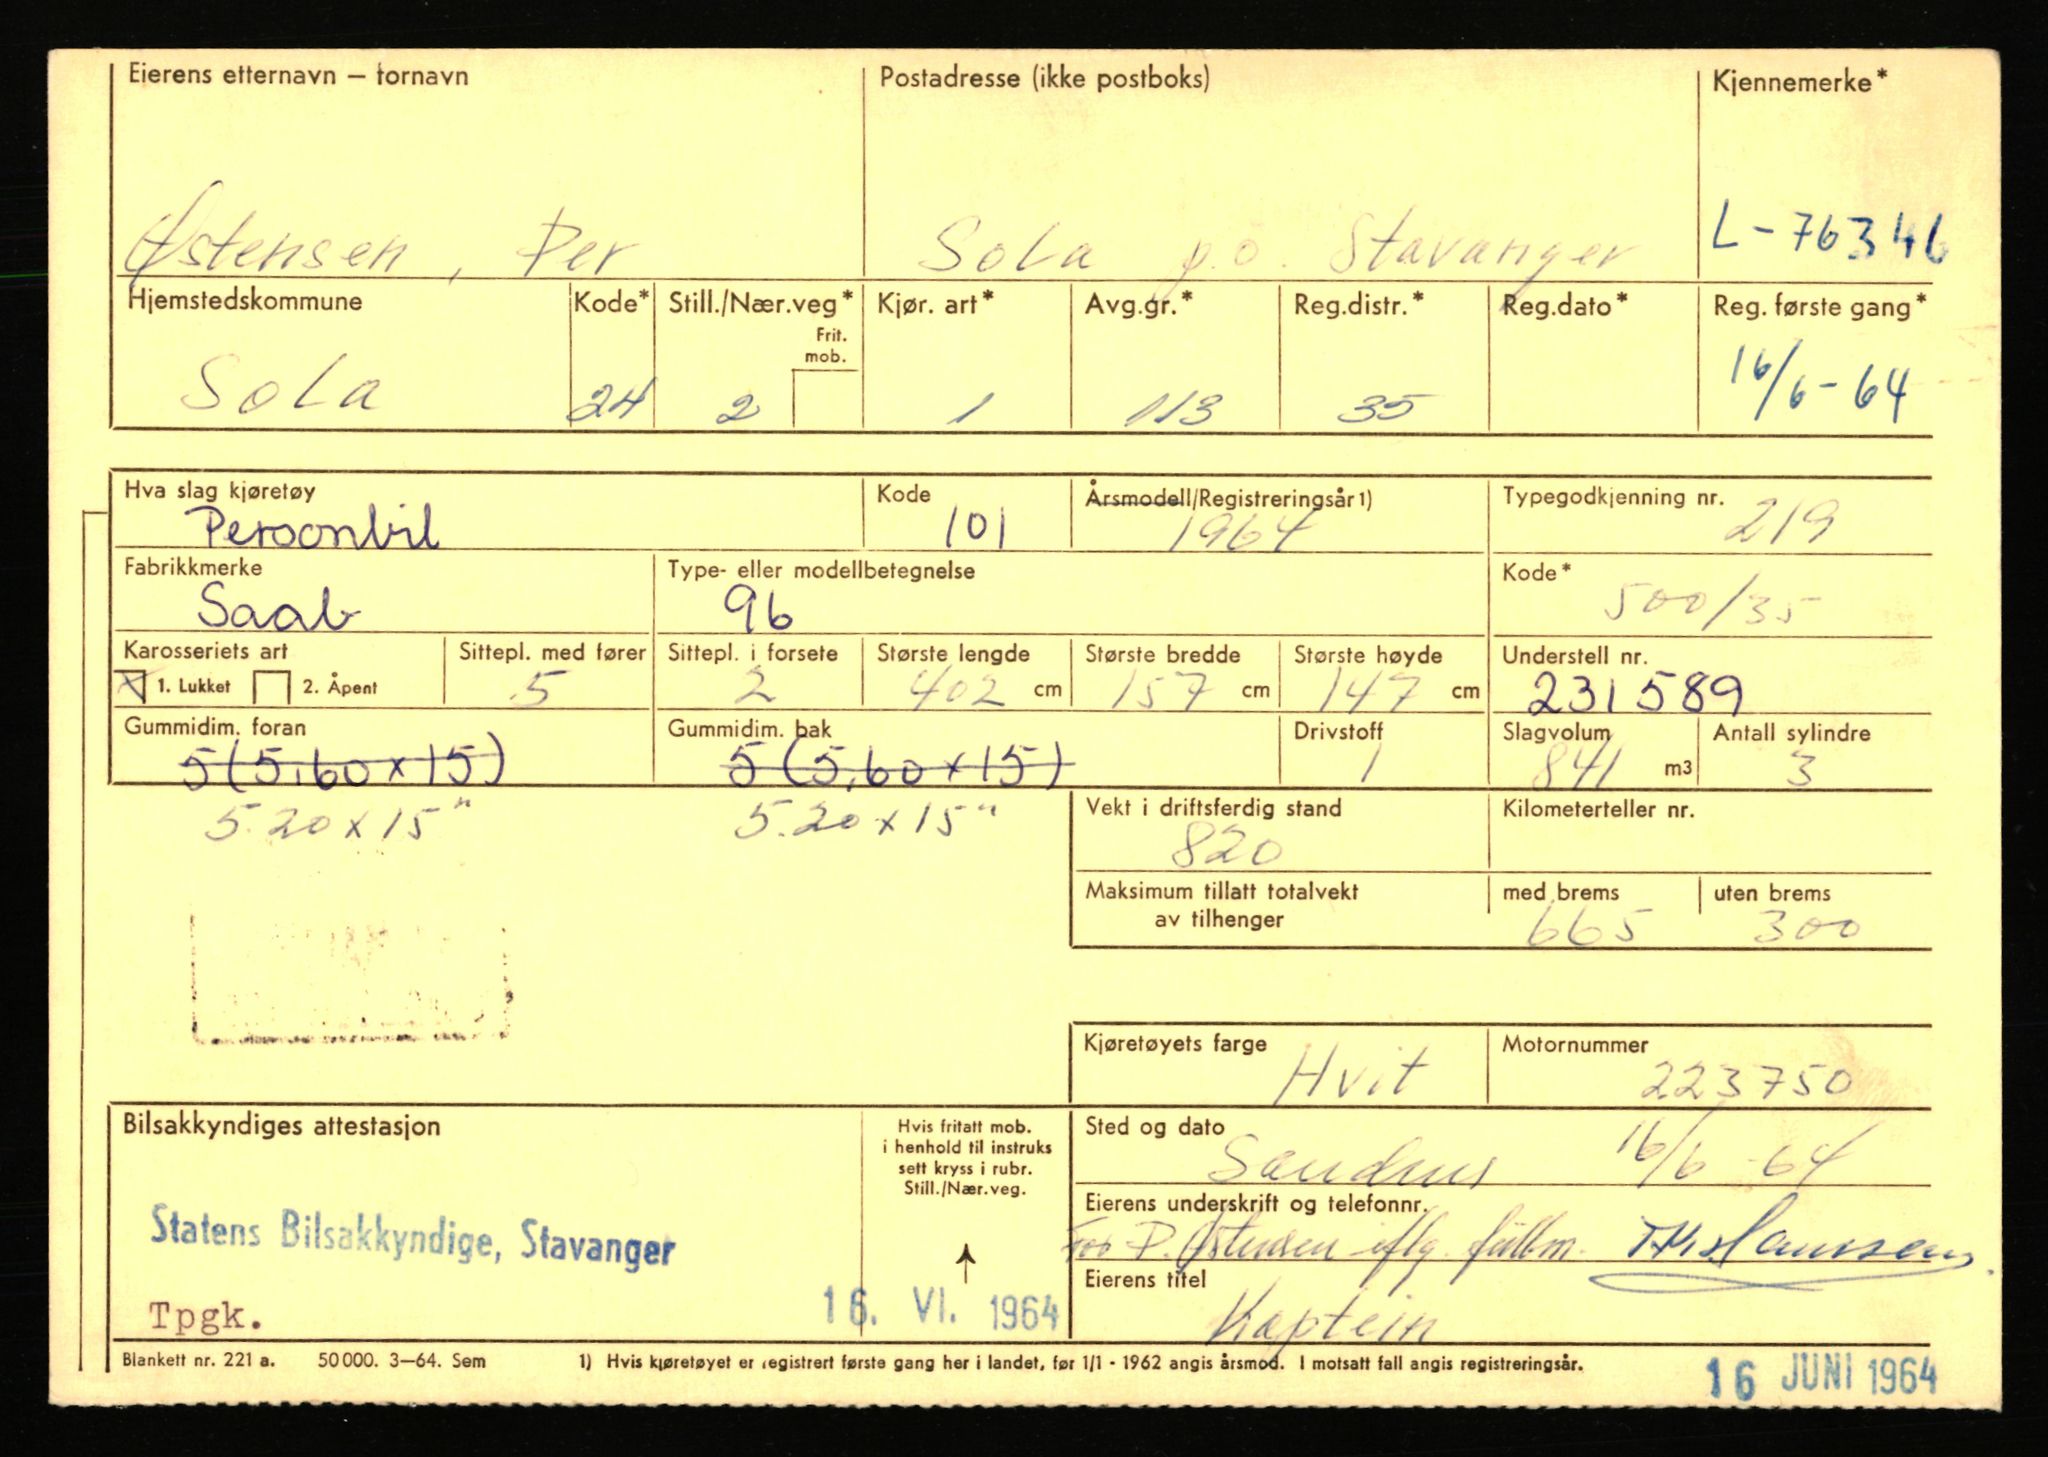 Eierens etternavn — fornavn Postadresse (ikke postboks) Kjennemerke*
Østensen, Per Sola p.o. Stavanger L-76346
Hjemstedskommune Kode* Still./Nær.veg* Kjør. art* Avg.gr.* Reg.distr.* Reg.dato* Reg. første gang*
Frit.
mob.
Sola 24 2 1 113 35 16/6-64
Hva slag kjøretøy Kode Årsmodell/Registreringsår1) Typegodkjenning nr.
Personbil 101 1964 219
Fabrikkmerke Type- eller modellbetegnelse Kode*
Saab 96 500/35
Karosseriets art Sittepl. med fører Sittepl. i forsete Største lengde Største bredde Største høyde Understell nr.
x 1. Lukket 2. Åpent 5 2 402 cm 157 cm 147 cm 231589
Gummidim. foran Gummidim. bak Drivstoff Slagvolum Antall sylindre
5(5,60x15) 5(5,60x15) 1 841 m3 3
5.20x15" 5.20x15"
Vekt i driftsferdig stand Kilometerteller nr.
820
Maksimum tillatt totalvekt av tilhenger med brems uten brems
665 300
Kjøretøyets farge Motornummer
Hvit 223750
Bilsakkyndiges attestasjon
Hvis fritatt mob.
i henhold til instruks
sett kryss i rubr.
Still./Nær.veg.
Sted og dato
Sandnes 16/6-64
Eierens underskrift og telefonnr.
for P. Østensen iflg. fullm.
Statens Bilsakkyndige, Stavanger
Eierens titel
Kaptein
Tpgk. 16. VI. 1964
Blankett nr. 221 a. 50 000. 3—64. Sem 1) Hvis kjøretøyet er registrert første gang her i landet, før 1/1 - 1962 angis årsmod. I motsatt fall angis registreringsår.
16 JUNI 1964